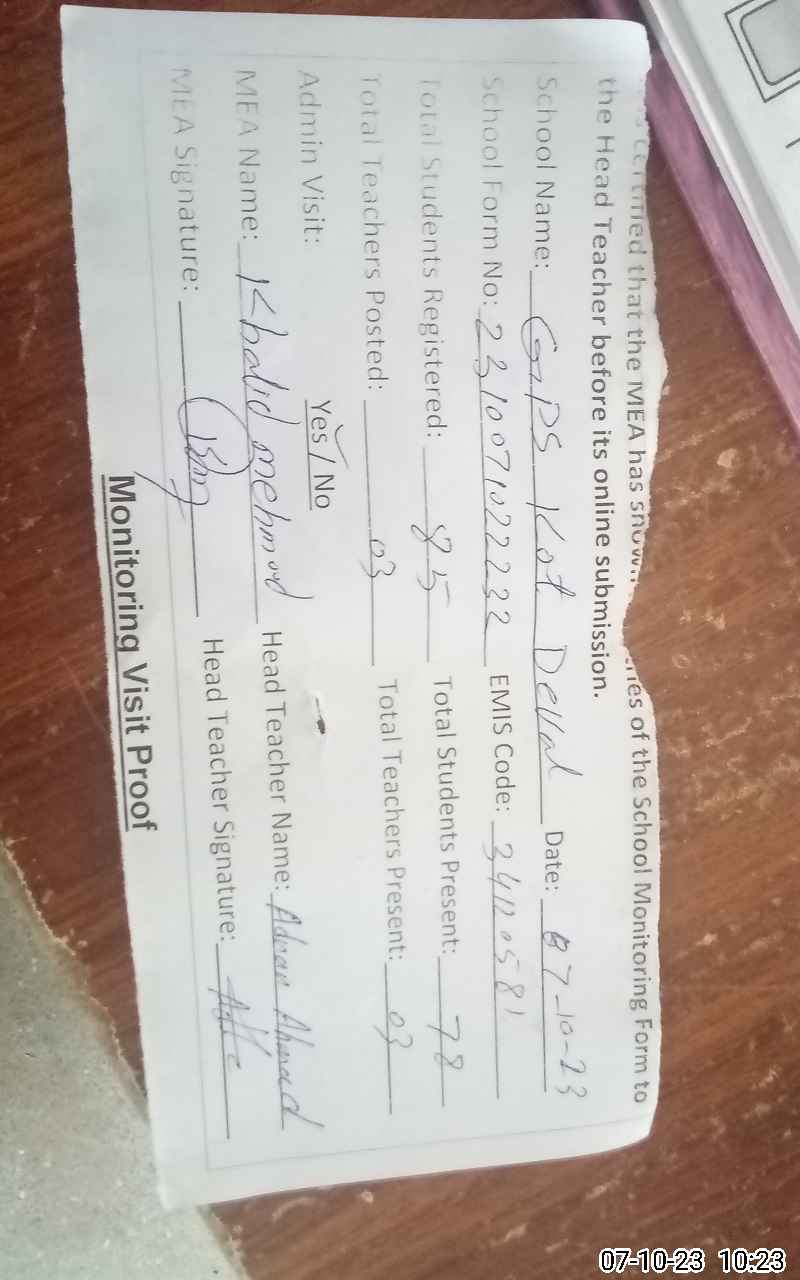 certified that the MEA has shown of the School Monitoring Form to
the Head Teacher before its online submission.
School Name: GPS Kot Delal Date: 07-10-23
School Form No: 2310071022232 EMIS Code: 34120581
Total Students Registered: 85 Total Students Present: 78
Total Teachers Posted: 03 Total Teachers Present: 03
Admin Visit: Yes / No
MEA Name: Khalid mehmod Head Teacher Name: Adnan Ahmad
MEA Signature: Head Teacher Signature:
Monitoring Visit Proof
07-10-23 10:23